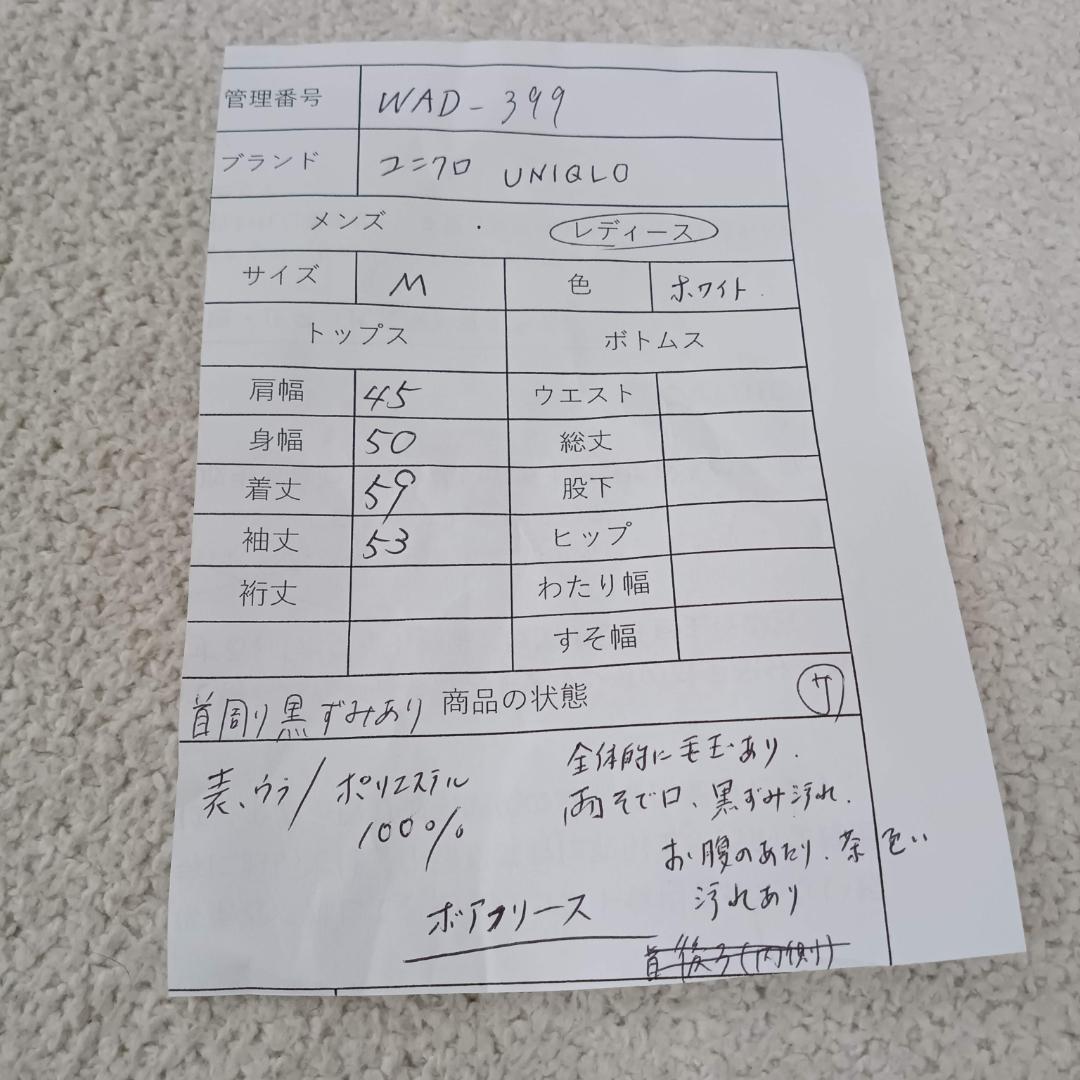 管理番号 WAD-399
ブランド ユニクロ UNIQLO
メンズ ・ レディース
サイズ M 色 ホワイト.
トップス ボトムス
肩幅 45 ウエスト
身幅 50 総丈
着丈 59 股下
袖丈 53 ヒップ
裄丈 わたり幅
すそ幅
首周り黒ずみあり 商品の状態 サ
表、ウラ/ポリエステル
100%
全体的に毛玉あり.
両そで口、黒ずみ汚れ.
お腹のあたり.茶色い
汚れあり
ボアフリース
首後ろ(内側)